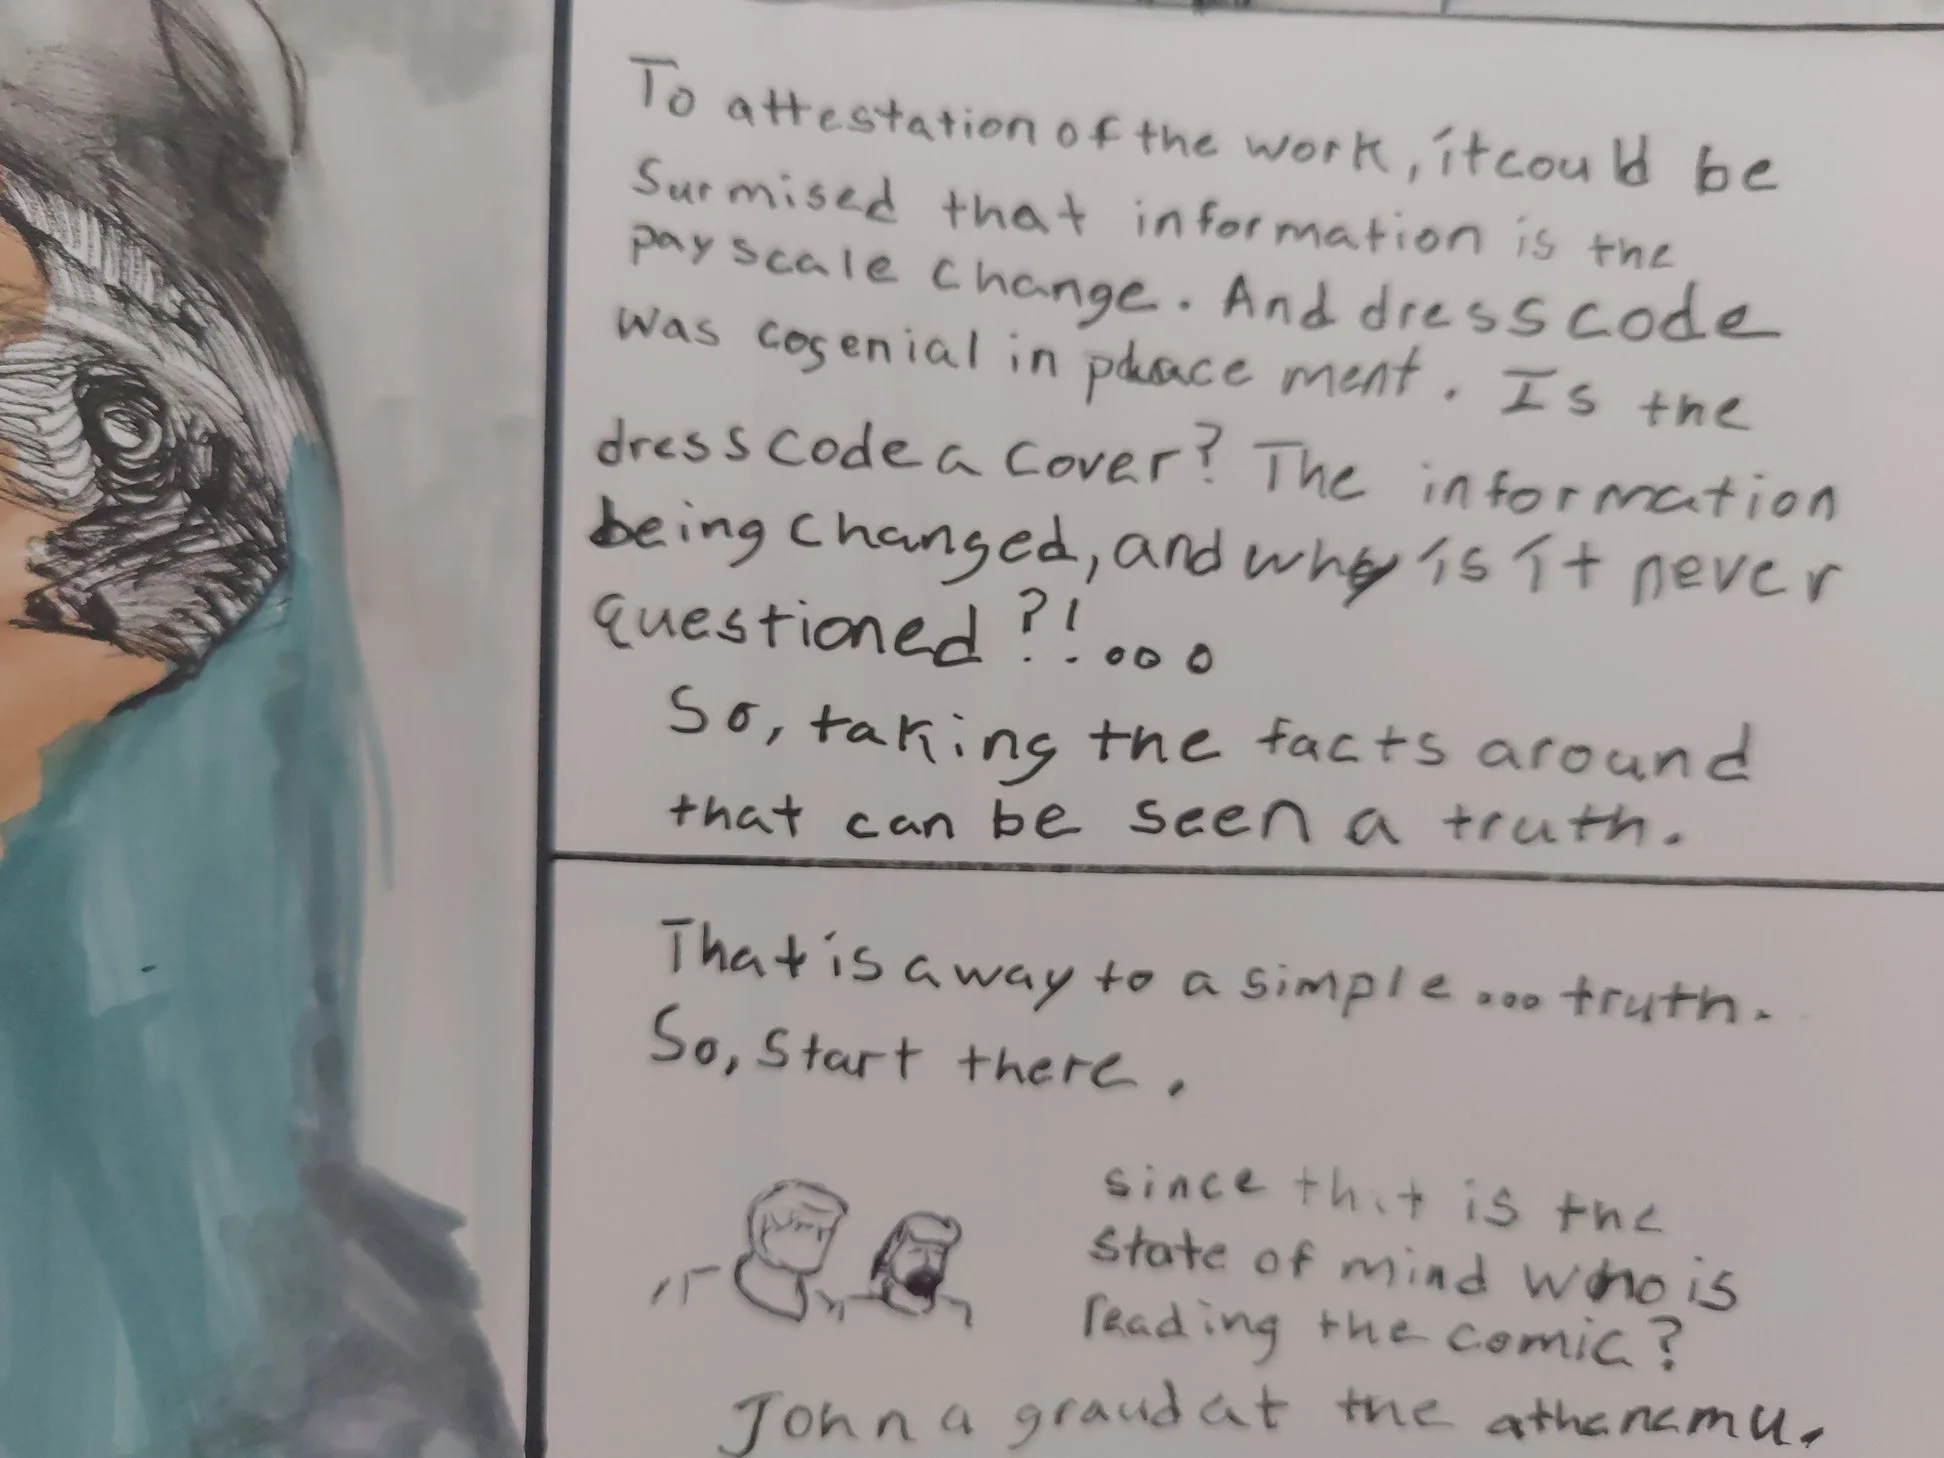 To attestation of the work, it could be
surmised that information is the
pay scale change. And dress code
was cogenial in placement. Is the
dress code a cover? The information
being changed, and why is it never
questioned?!....
So, taking the facts around
that can be seen a truth.
That is a way to a simple ... truth.
So, start there.
since that is the
state of mind who is
reading the comic?
John a graud at the athenamu.